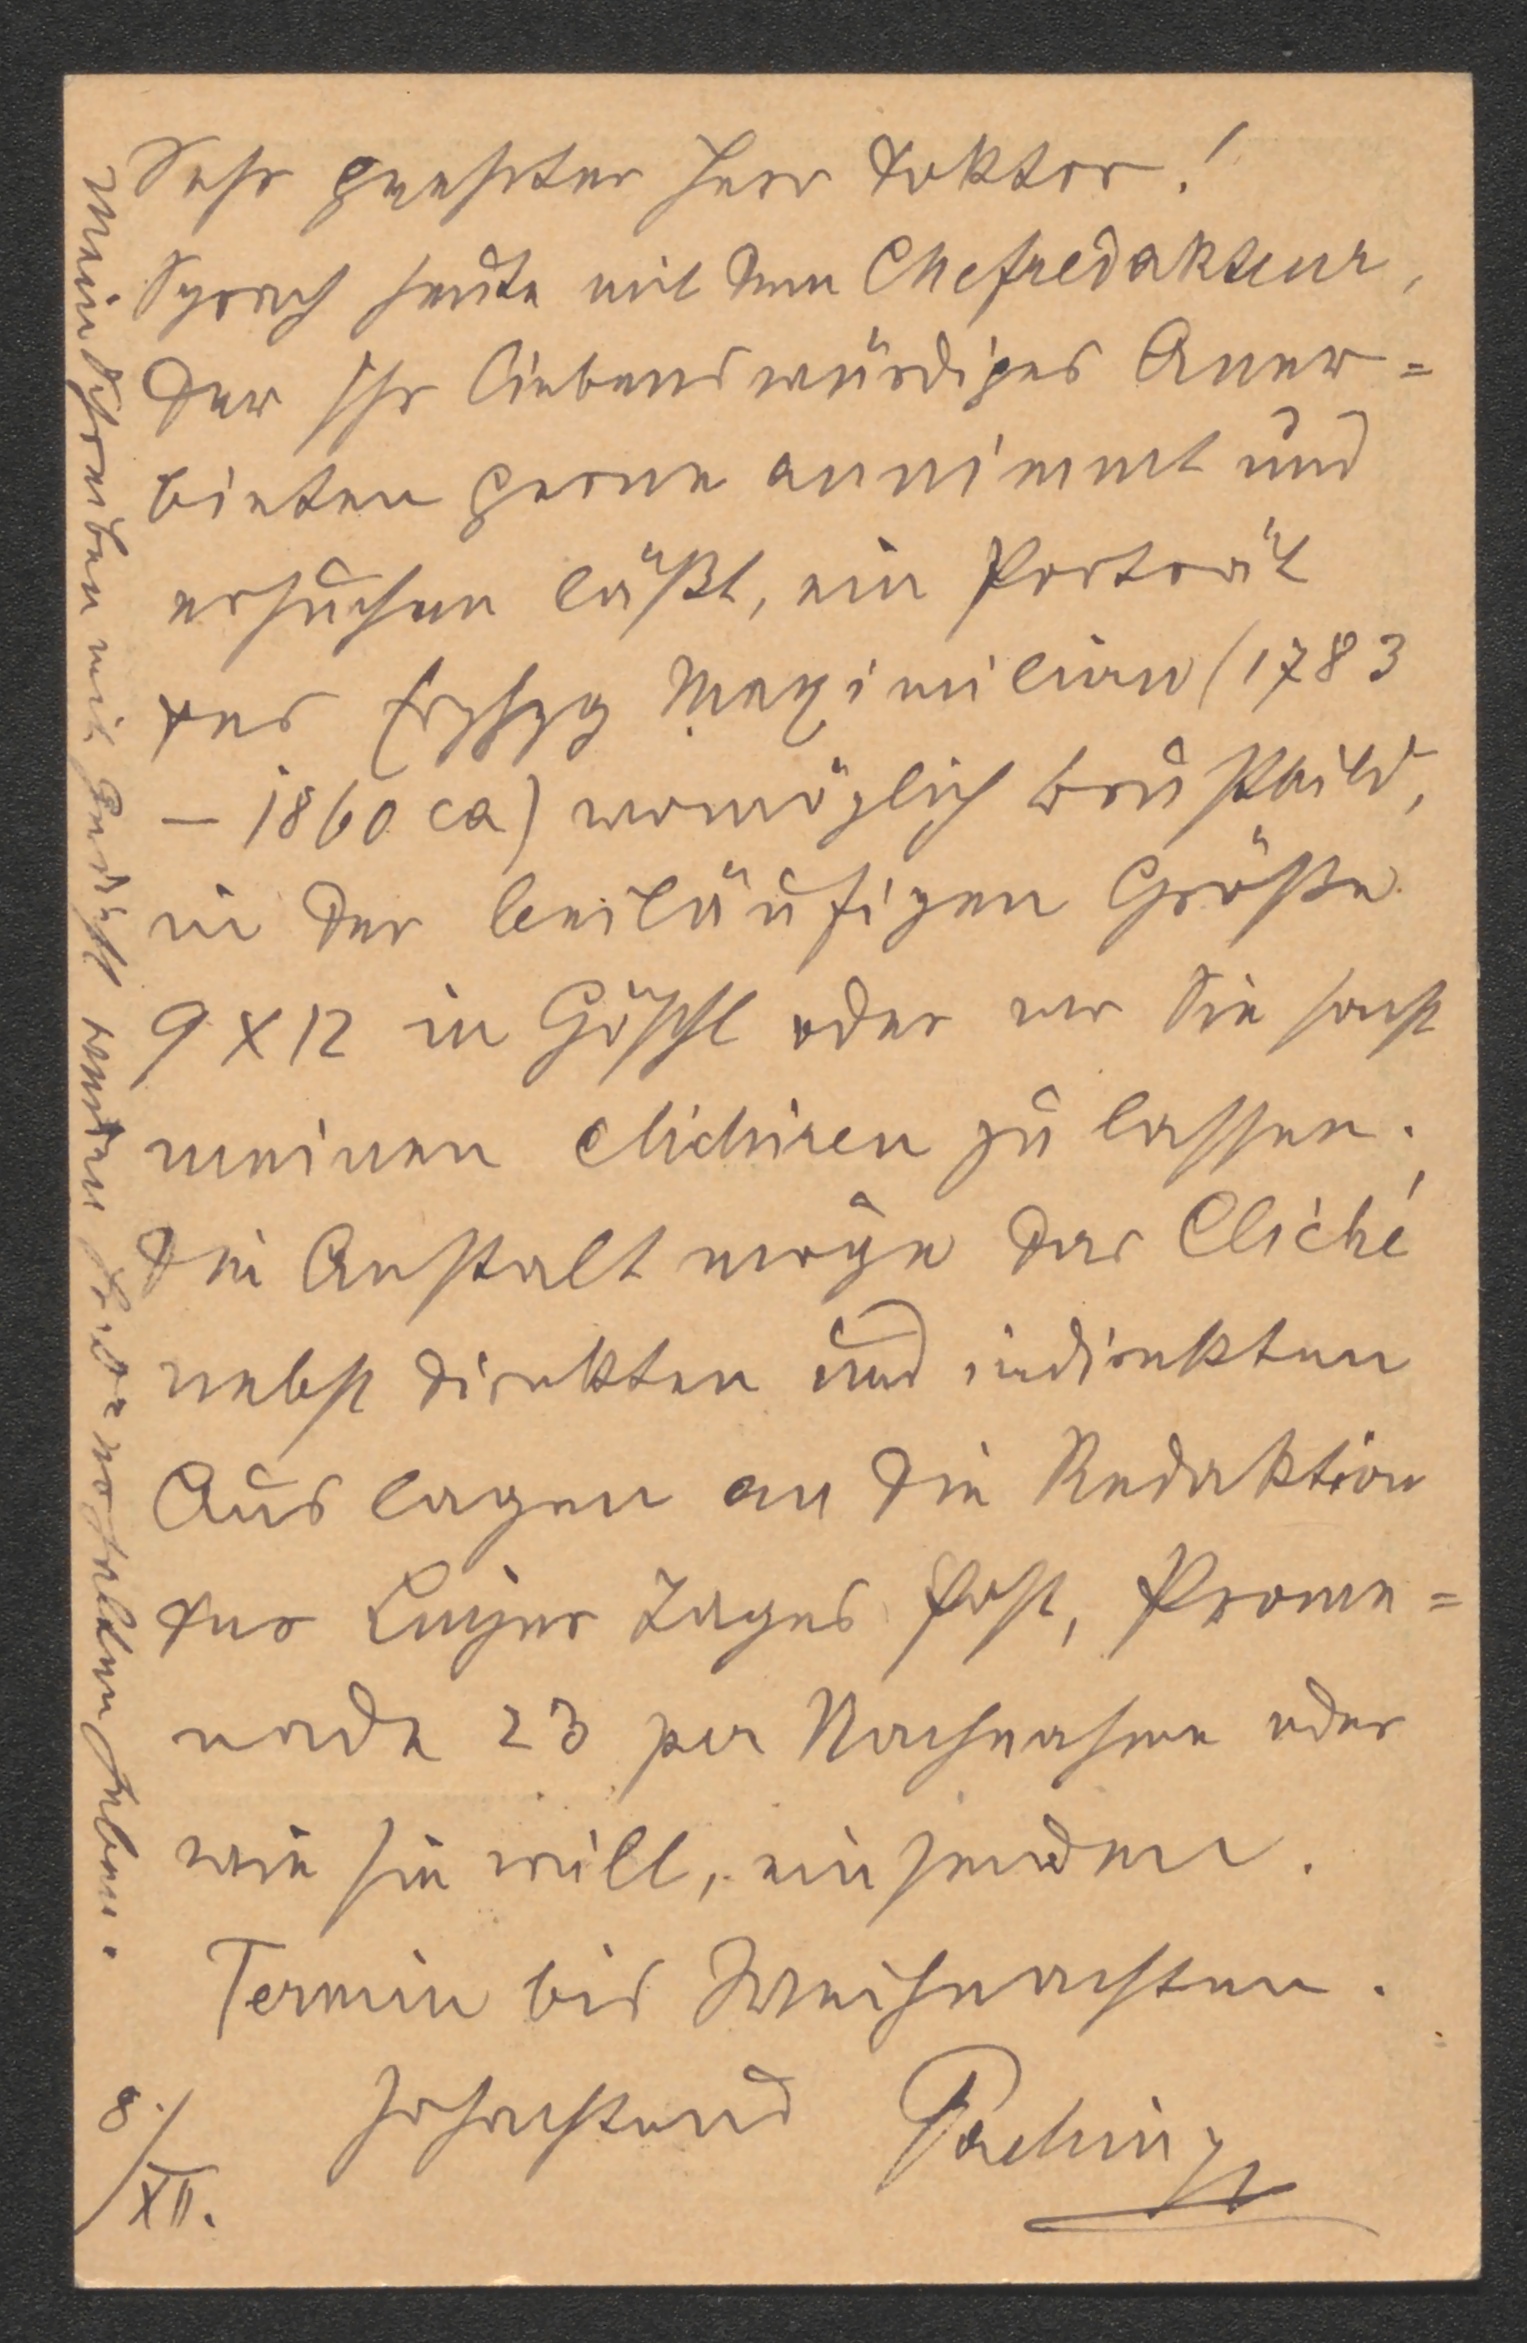 Sehr geehrter Herr Doktor!
Sprach heute mit dem Chefredakteur,
der Ihr liebenswürdiges Aner=
bieten gerne annimmt und
ersuchen läßt, ein Porträt
des Erzhzg Maximilian (1783
– 1860 ca) womöglich Brustbild,
in der beiläufigen Größe
9 x 12 in Göschl oder wo Sie sonst
meinen clichiren zu lassen.
Die Anstalt möge das Cliché
nebst direkten und indirekten
Auslagen an die Redaktion
der Linzer Tages Post, Prome=
nade 23 per Nachnahme oder
wie sie will, einsenden.
Termin bis Weihnachten.
Hochachtend Pachinger
8./XII.
Mein Schreiben mit Gedicht werden Sie wohl erhalten haben.